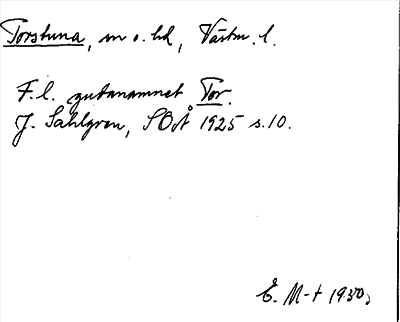 Torstuna, sn o. hd, Västm. l.
F. l. gudanamnet Tor.
J. Sahlgren, SOÅ 1925 s. 10.
E. M-t 1930.